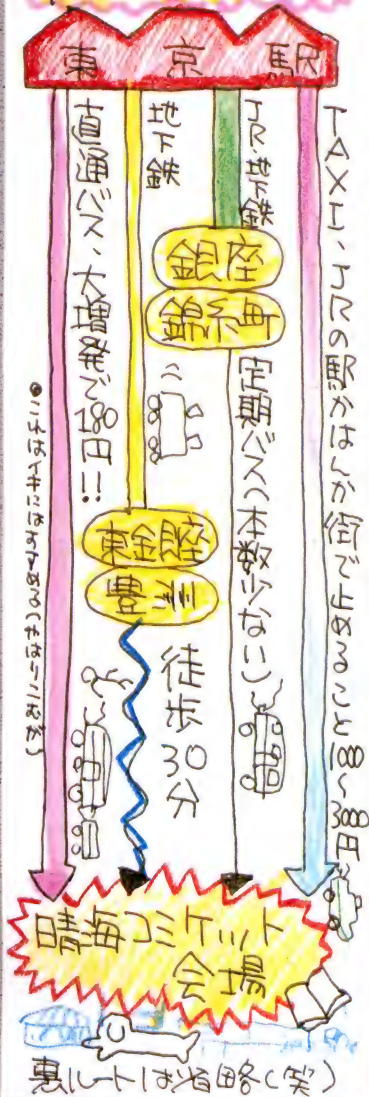 東京駅
TAXI、JRの駅かはんか街で止めること1000〜3000円
JR地下鉄
銀座
錦糸町
定期バス(本数少ない)
地下鉄
東銀座
豊洲
徒歩30分
直通バス、大増発で180円!!
●これはイキにはおすすめる(やはりこれだ)
晴海コミケット
会場
裏ルートは省略(笑)